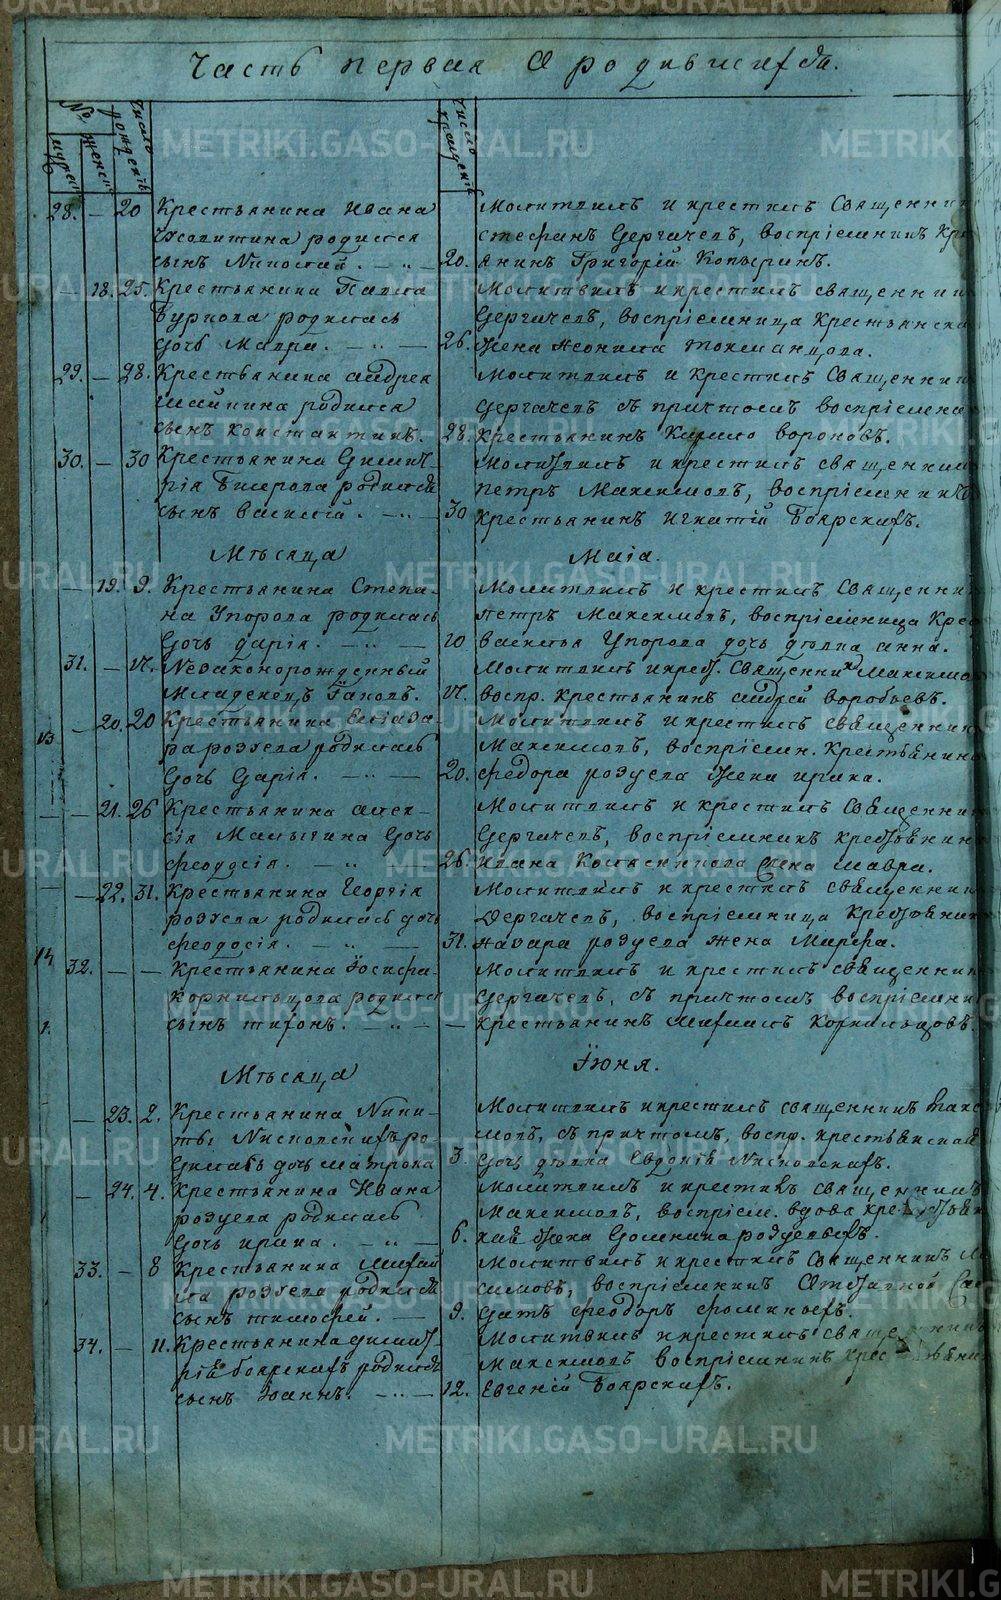 Часть первая О родившихся.
№
мужеск
женск
Число рожденія
Число крещенія
28. — 20 Крестьянина Ивана
родился
сынъ Николай. — „ —
20.
Молитвилъ и крестилъ Священник
Стефанъ Дергачевъ, воспріемникъ Кре
янинъ Григорій Копыринъ.
— 18. 25. Крестьянина Павла
Буркова родилась
дочь Мавра. — „ —
26.
Молитвилъ и крестилъ священник
Дергачевъ, воспріемница Крестьянска
жена
29. — 28. Крестьянина Андрея
родился
сынъ Константинъ.
28.
Молитвилъ и крестилъ Священник
Дергачевъ съ причтомъ воспріемни
Крестьянинъ Кирило Вороновъ.
30. — 30 Крестьянина Димит-
рія родился
сынъ Василій. — „ —
30
Молитвилъ и крестилъ священник
Петръ Максимовъ, воспріемникъ
Крестьянинъ Игнатій Боярскихъ.
Мѣсяца Маія.
— 19. 9. Крестьянина Степа-
на Упорова родилась
дочь Дарія. — „ —
10
Молитвилъ и крестилъ Священни
Петръ Максимовъ, воспріемница Крес
Василья Упорова дочь дѣвка Анна.
31. — 17. Незаконорожденный
Младенецъ Іаковъ.
17.
Молитвилъ и крес. Священникъ Максимо
воспр. Крестьянинъ Андрей Воробьевъ.
— 20. 20 Крестьянина Елиаза-
ра Розуева родилась
дочь Дарія. — „ —
20.
Молитвилъ и крестилъ священник
Максимовъ, воспріемн. Крестьянина
Федора Розуева жена Ирина.
— 21. 26 Крестьянина Алек-
сія Малыгина дочь
Феодосія. — „ —
26.
Молитвилъ и крестилъ Священник
Дергачевъ, воспріемникъ крестьянин
Ивана Колесникова жена Мавра.
— 22. 31. Крестьянина Георгія
Розуева родилась дочь
Феодосія. — „ —
31.
Молитвилъ и крестилъ священник
Дергачевъ, воспріемница Крестьянин
Назара Розуева жена Марфа.
32. — — Крестьянина Іосифа
Корнильцова родился
сынъ Тифонъ. — „ —
—
Молитвилъ и крестилъ священник
Дергачевъ, съ причтомъ воспріемни
Крестьянинъ Корнильцовъ.
Мѣсяца Іюня.
— 23. 2. Крестьянина Ники-
ты Нисковскихъ ро
дилась дочь Матрона
3.
Молитвилъ и крестилъ священникъ Макс
мовъ, съ причтомъ, воспр. крестьянская
дочь дѣвка Евдокія Нисковскихъ.
— 24. 4. Крестьянина Ивана
Розуева родилась
дочь Ирина. — „ —
6.
Молитвилъ и крестилъ священникъ
Максимовъ, воспріем. вдова крестьян
кая жена Домнина
33. — 8 Крестьянина Михай
ла Розуева родился
сынъ Тимофей. —
9.
Молитвилъ и крестилъ Священникъ Ма
симовъ, воспріемникъ Отставной Сол
датъ Феодоръ Фоминыхъ.
34. — 11. Крестьянина Димит-
рія Боярскихъ родился
сынъ Іоаннъ. — „ —
12.
Молитвилъ и крестилъ священникъ
Максимовъ воспріемникъ крестьянин
Евгеній Боярскихъ.
METRIKI.GASO-URAL.RU